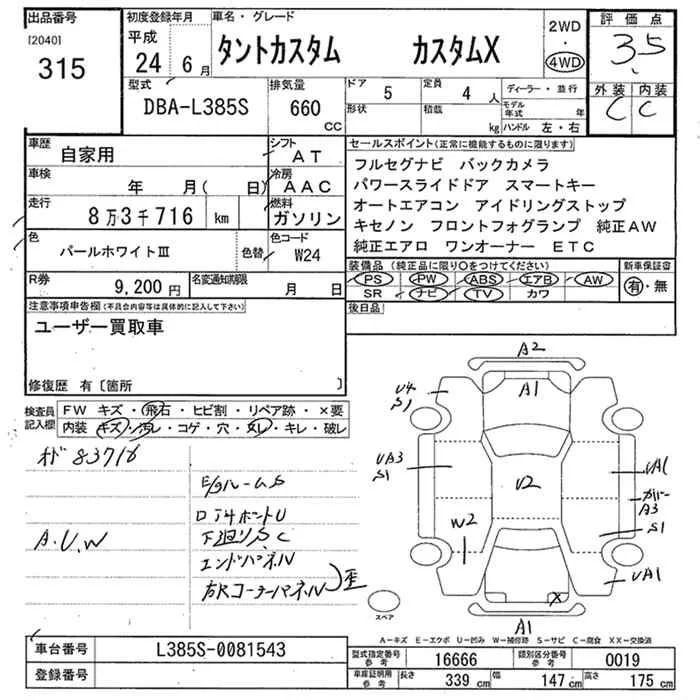 出品番号 初度登録年月 車名・グレード 2WD 評価点
[2040] 平成 ・
315 24年 6月 タントカスタム カスタムX 4WD 3.5
型式 排気量 ドア 5 定員 4人 ディーラー・並行 外装 内装
DBA-L385S 660 CC 形状 積載 kg モデル年式 年 C C
ハンドル 左・右
車歴 自家用 シフト AT
車検 年 月( 日) 冷房 AAC
走行 8万3千716 km 燃料 ガソリン
色 パールホワイトⅢ 色替 色コード W24
R券 9,200円 名変通知期限 月 日
セールスポイント(正常に機能するものに限ります)
フルセグナビ バックカメラ
パワースライドドア スマートキー
オートエアコン アイドリングストップ
キセノン フロントフォグランプ 純正AW
純正エアロ ワンオーナー ETC
装備品(純正品に限り○をつけてください) 新車保証書
PS PW ABS エアB AW 有・無
SR ナビ TV カワ
後日品
注意事項申告欄(不具合内容等は具体的に記入して下さい)
ユーザー買取車
修復歴 有〔箇所 〕
検査員記入欄 FW キズ・飛石・ヒビ割・リペア跡・×要
内装 キズ・汚レ・コゲ・穴・スレ・キレ・破レ
オド 83716
A.U.W
下廻りS.C
エンドパネル
右Rコーナーパネル 歪
A2
A1
U4
S1
UA3
S1
U2
UA1
カバー
A3
S1
W2
UA1
X
スペア
A1
A-キズ E-エクボ U-凹み W-補修跡 S-サビ C-腐食 XX-交換済
車台番号 L385S-0081543
登録番号
型式指定番号 参考 16666 類別区分番号 参考 0019
車庫証明用 参考 長さ 339cm 幅 147cm 高さ 175cm